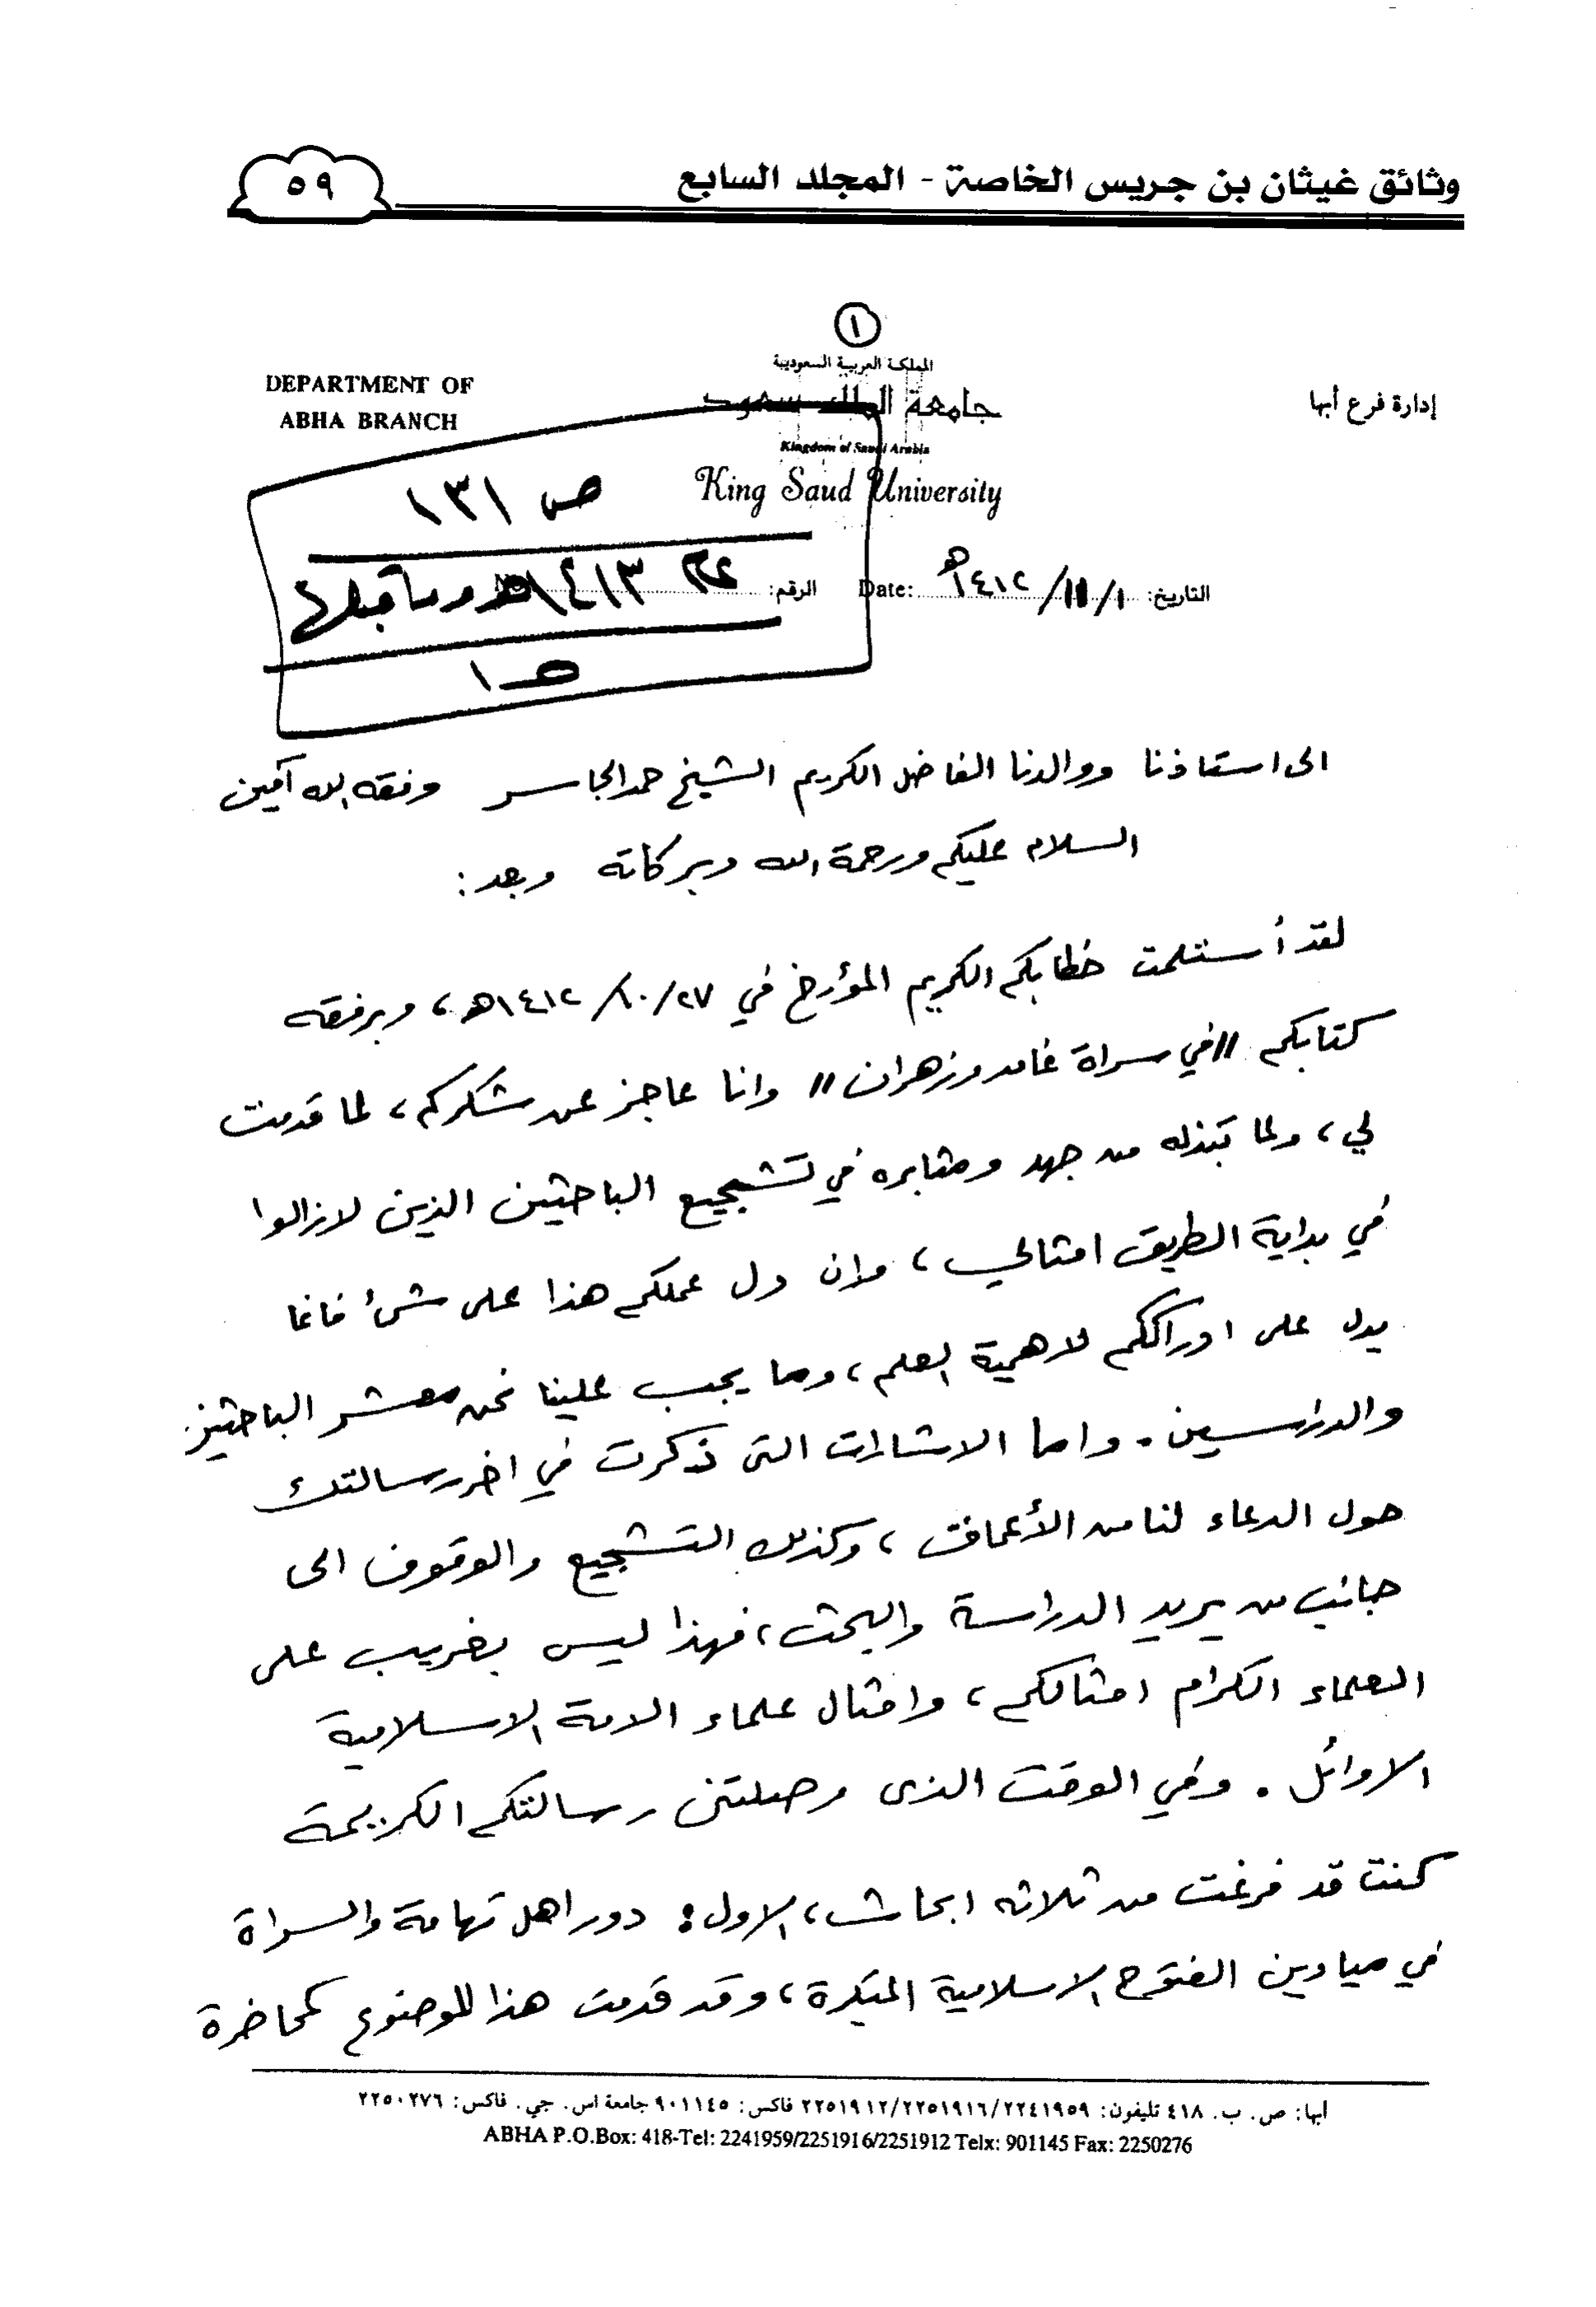 وثائق غيثان بن جريس الخاصة - المجلد السابع
٥٩
١
المملكة العربية السعودية
جامعة الملك سعود
Kingdom of Saudi Arabia
King Saud University
إدارة فرع أبها
DEPARTMENT OF
ABHA BRANCH
ص ١٣١
١٤١٣هـ وما قبلها
ص ١
التاريخ: ١/ ١١/ ١٤١٢هـ Date: الرقم:
الى استاذنا ووالدنا الفاضل الكريم الشيخ حمد الجاسر وفقه الله آمين
السلام عليكم ورحمة الله وبركاته وبعد:
لقد أستلمت خطابكم الكريم المؤرخ في ٢٧/ ١٠/ ١٤١٢هـ، وبرفقه
كتابكم "في سراة غامد وزهران" وانا عاجز عن شكركم، لما قدمت
لي، ولما تبذله من جهد ومثابره في تشجيع الباحثين الذين لازالوا
في بداية الطريق امثالي، وان دل عملكم هذا على شئ فانما
يدل على ادراككم لاهمية العلم، وما يجب علينا نحن معشر الباحثين
والدارسين. واما الاشارات التى ذكرت في اخر رسالتك
حول الدعاء لنا من الأعماق، وكذلك التشجيع والوقوف الى
جانب من يريد الدراسة والبحث، فهذا ليس بغريب على
العلماء الكرام امثالكم، وامثال علماء الامة الاسلامية
الاوائل. وفي الوقت الذى وصلتنى رسالتكم الكريمة
كنت قد فرغت من ثلاثه ابحاث، الاول: دور اهل تهامة والسراة
في ميادين الفتوح الاسلامية المبكرة، وقد قدمت هذا الموضوع كمحاضرة
أبها: ص. ب. ٤١٨ تليفون: ٢٢٤١٩٥٩/٢٢٥١٩١٦/٢٢٥١٩١٢ فاكس: ٩٠١١٤٥ جامعة اس. جي. فاكس: ٢٢٥٠٢٧٦
ABHA P.O.Box: 418-Tel: 2241959/2251916/2251912 Telx: 901145 Fax: 2250276